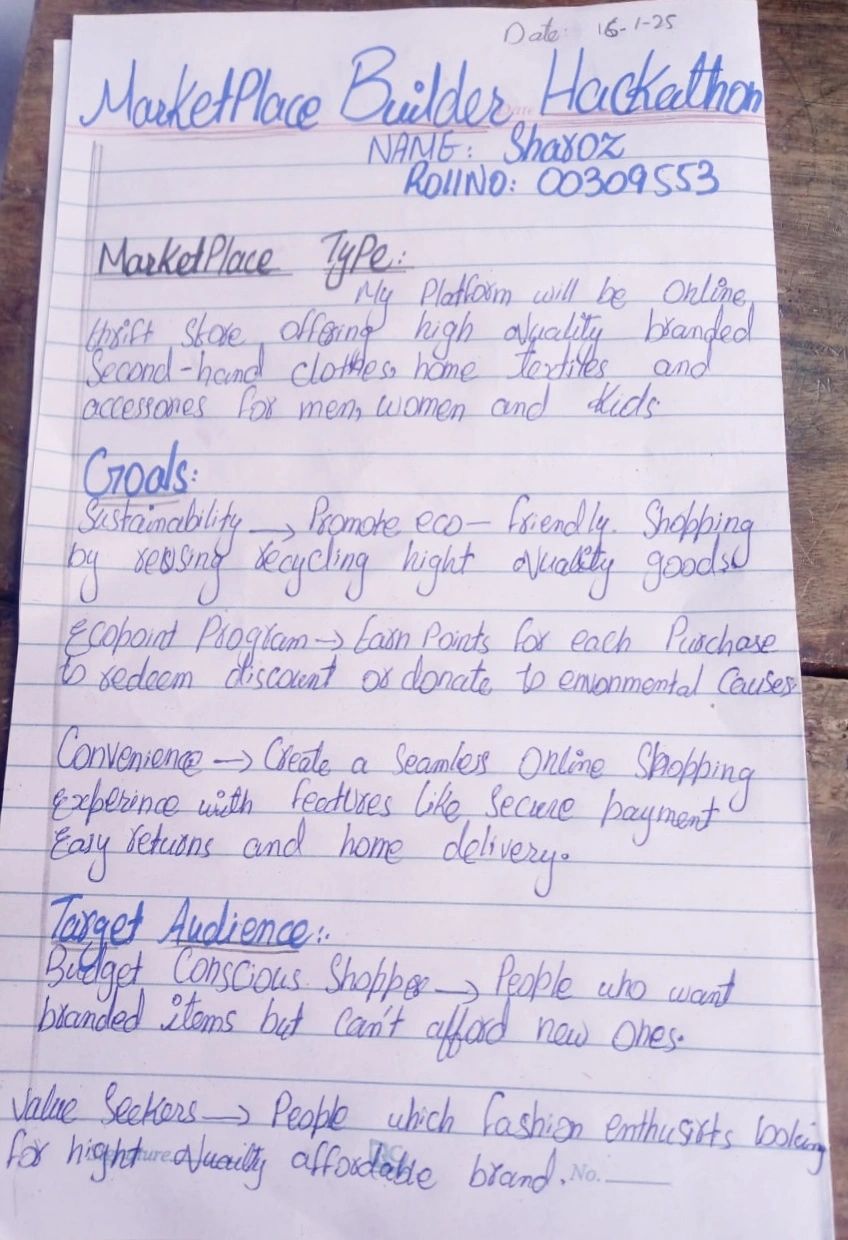 Date: 16-1-25
MarketPlace Builder Hackathon
NAME: Sharoz
ROllNO: 00309553
MarketPlace Type:
My Platform will be Online
thrift store, offering high Quality branded
Second-hand clothes, home textiles and
accessories for men, women and Kids
Goals:
Sustainability → Promote eco-friendly. Shopping
by reusing recycling hight Quality goods
Ecopoint Program → Earn Points for each Purchase
to redeem discount or donate to envionmental Causes.
Convenience → Create a Seamless Online Shopping
Experince with features like Secure payment
Easy returns and home delivery.
Target Audience:.
Budget Conscious Shopper → People who want
branded items but can't afford new Ones.
Value Seekers → People which fashion enthusists looking
for hight Quailty affordable brand. No.